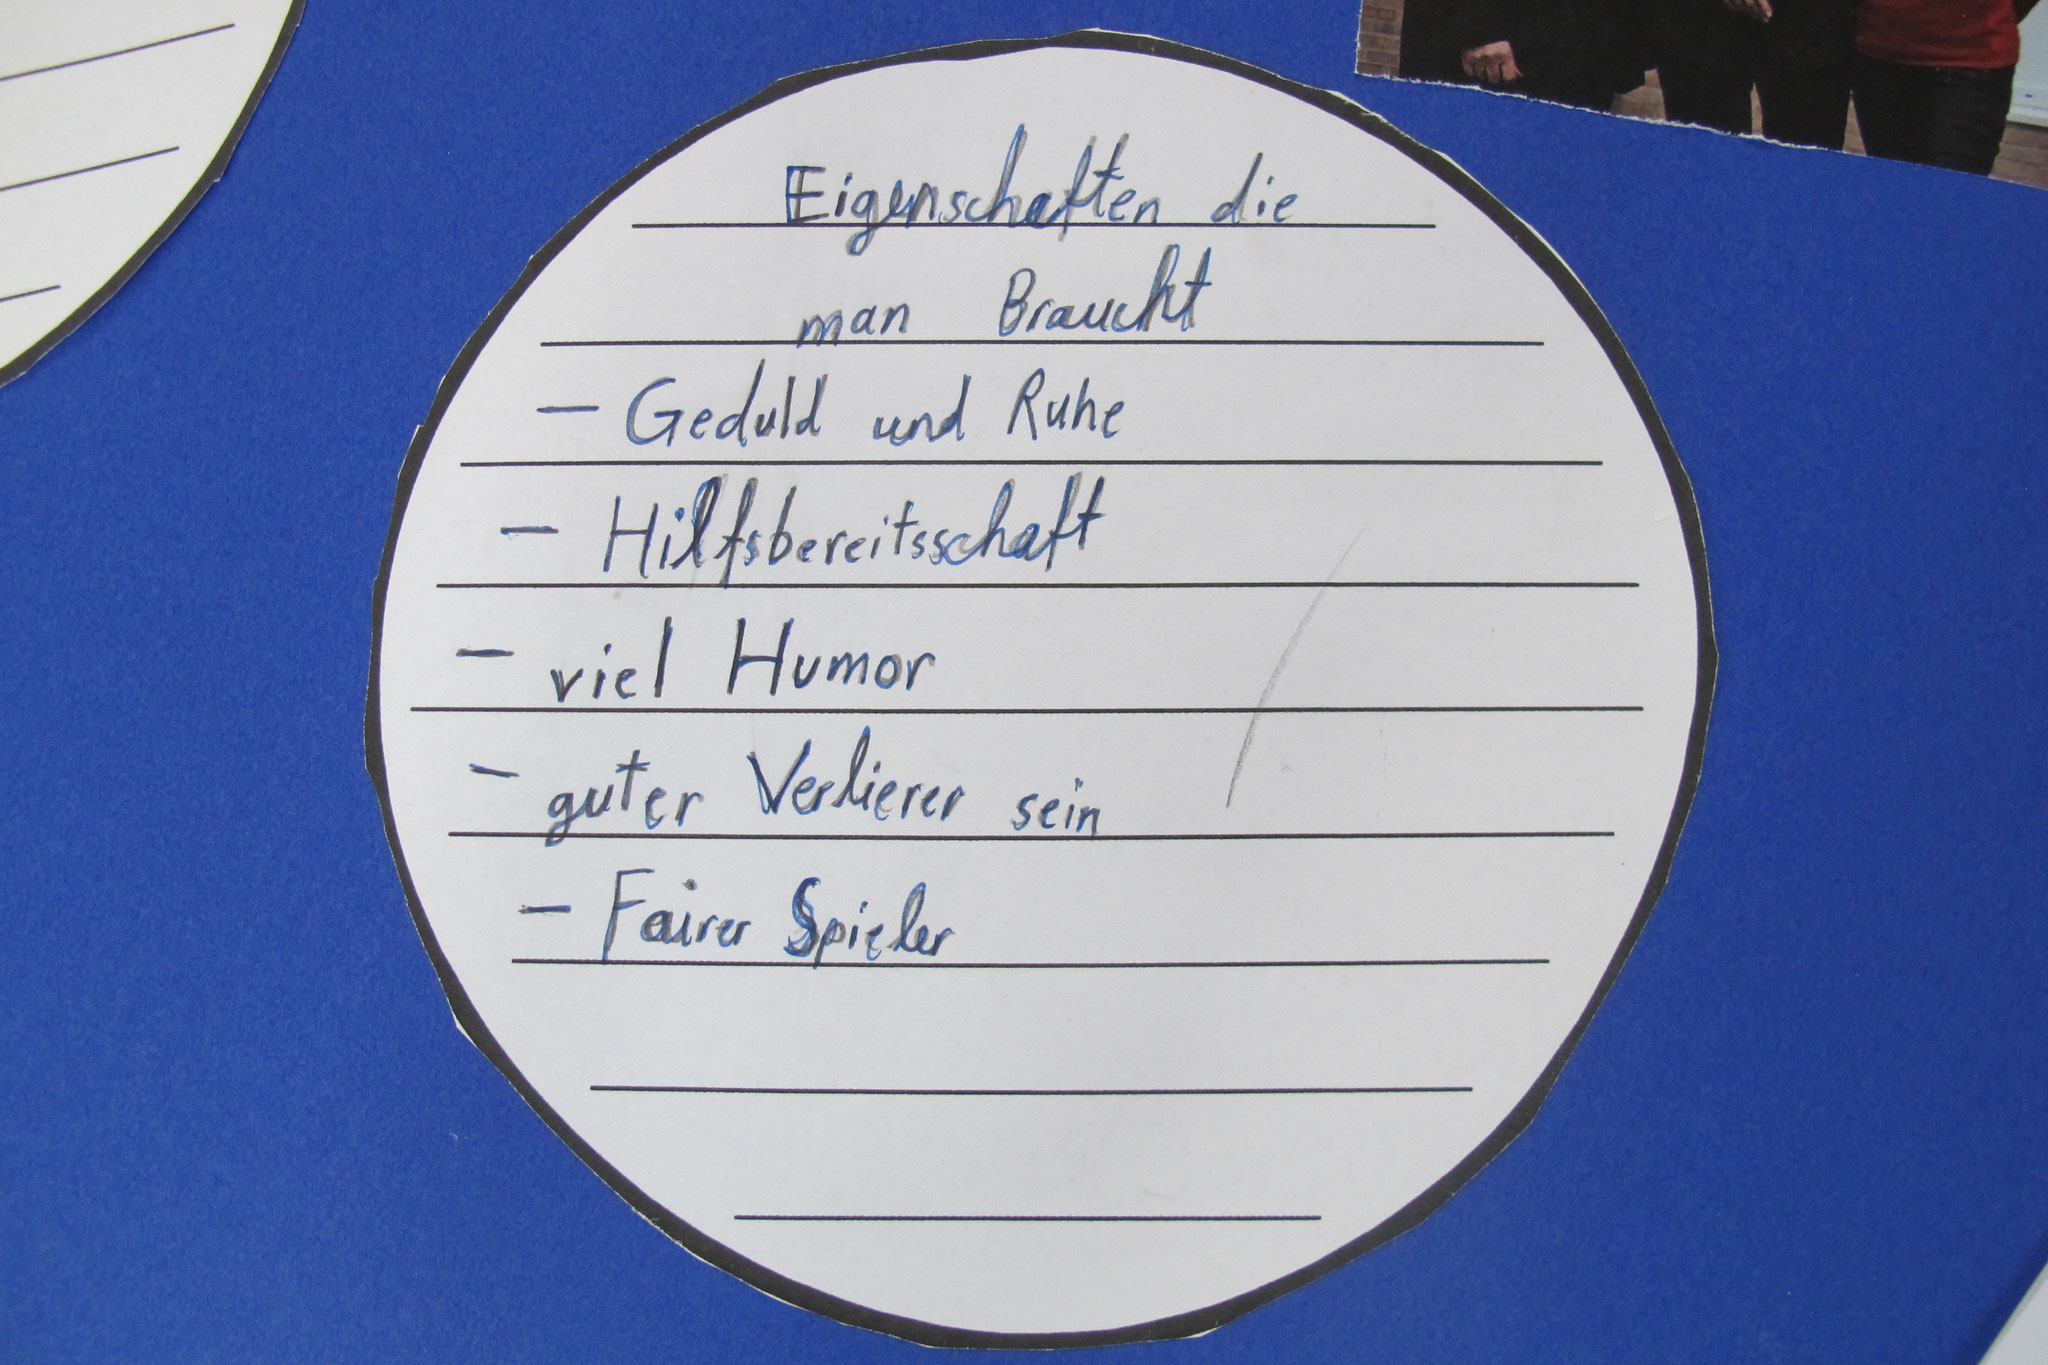 Eigenschaften die
man Braucht
- Geduld und Ruhe
- Hilfsbereitsschaft
- viel Humor
- guter Verlierer sein
- Fairer Spieler